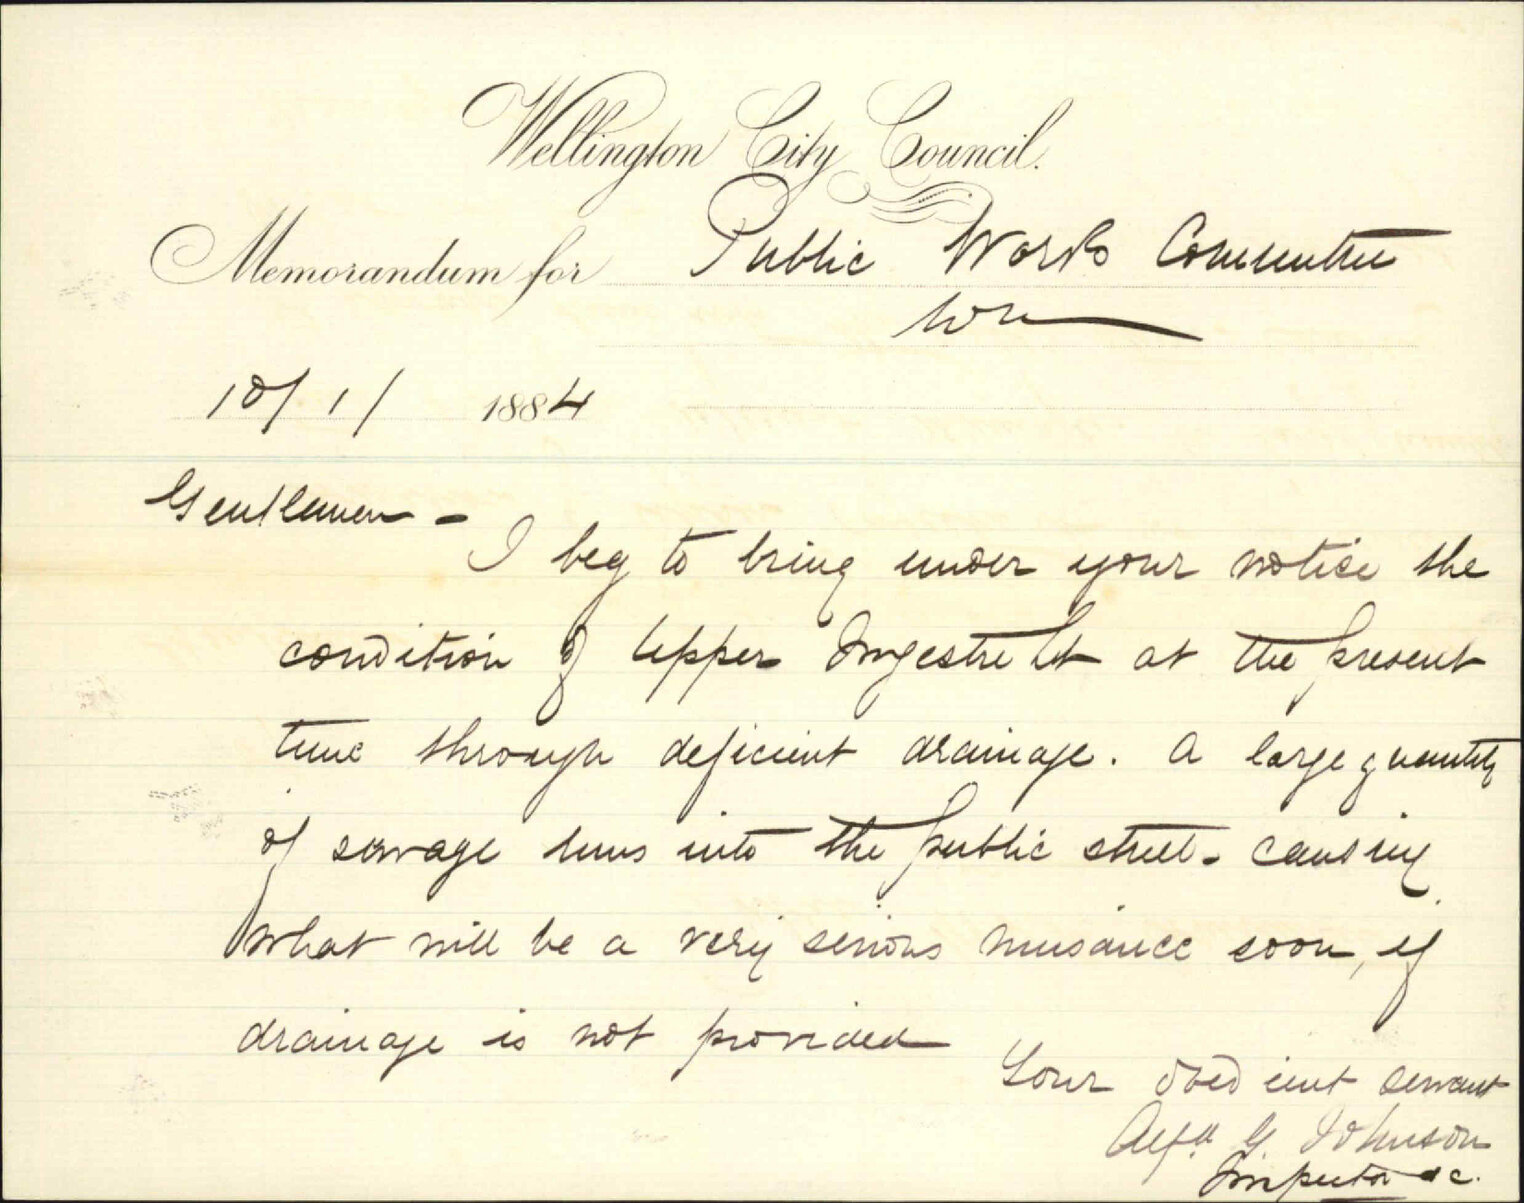 Wellington City Council.
Memorandum for Public Works Committee
10/1/ 1884
Gentlemen -
I beg to bring under your notice the
condition of Upper Ingestre St at the present
time through deficient drainage. A large quantity
of sewage runs into the public street - causing
what will be a very serious nuisance soon, if
drainage is not provided
Your obedient servant
Alfd G. Johnson
Inspector &c.